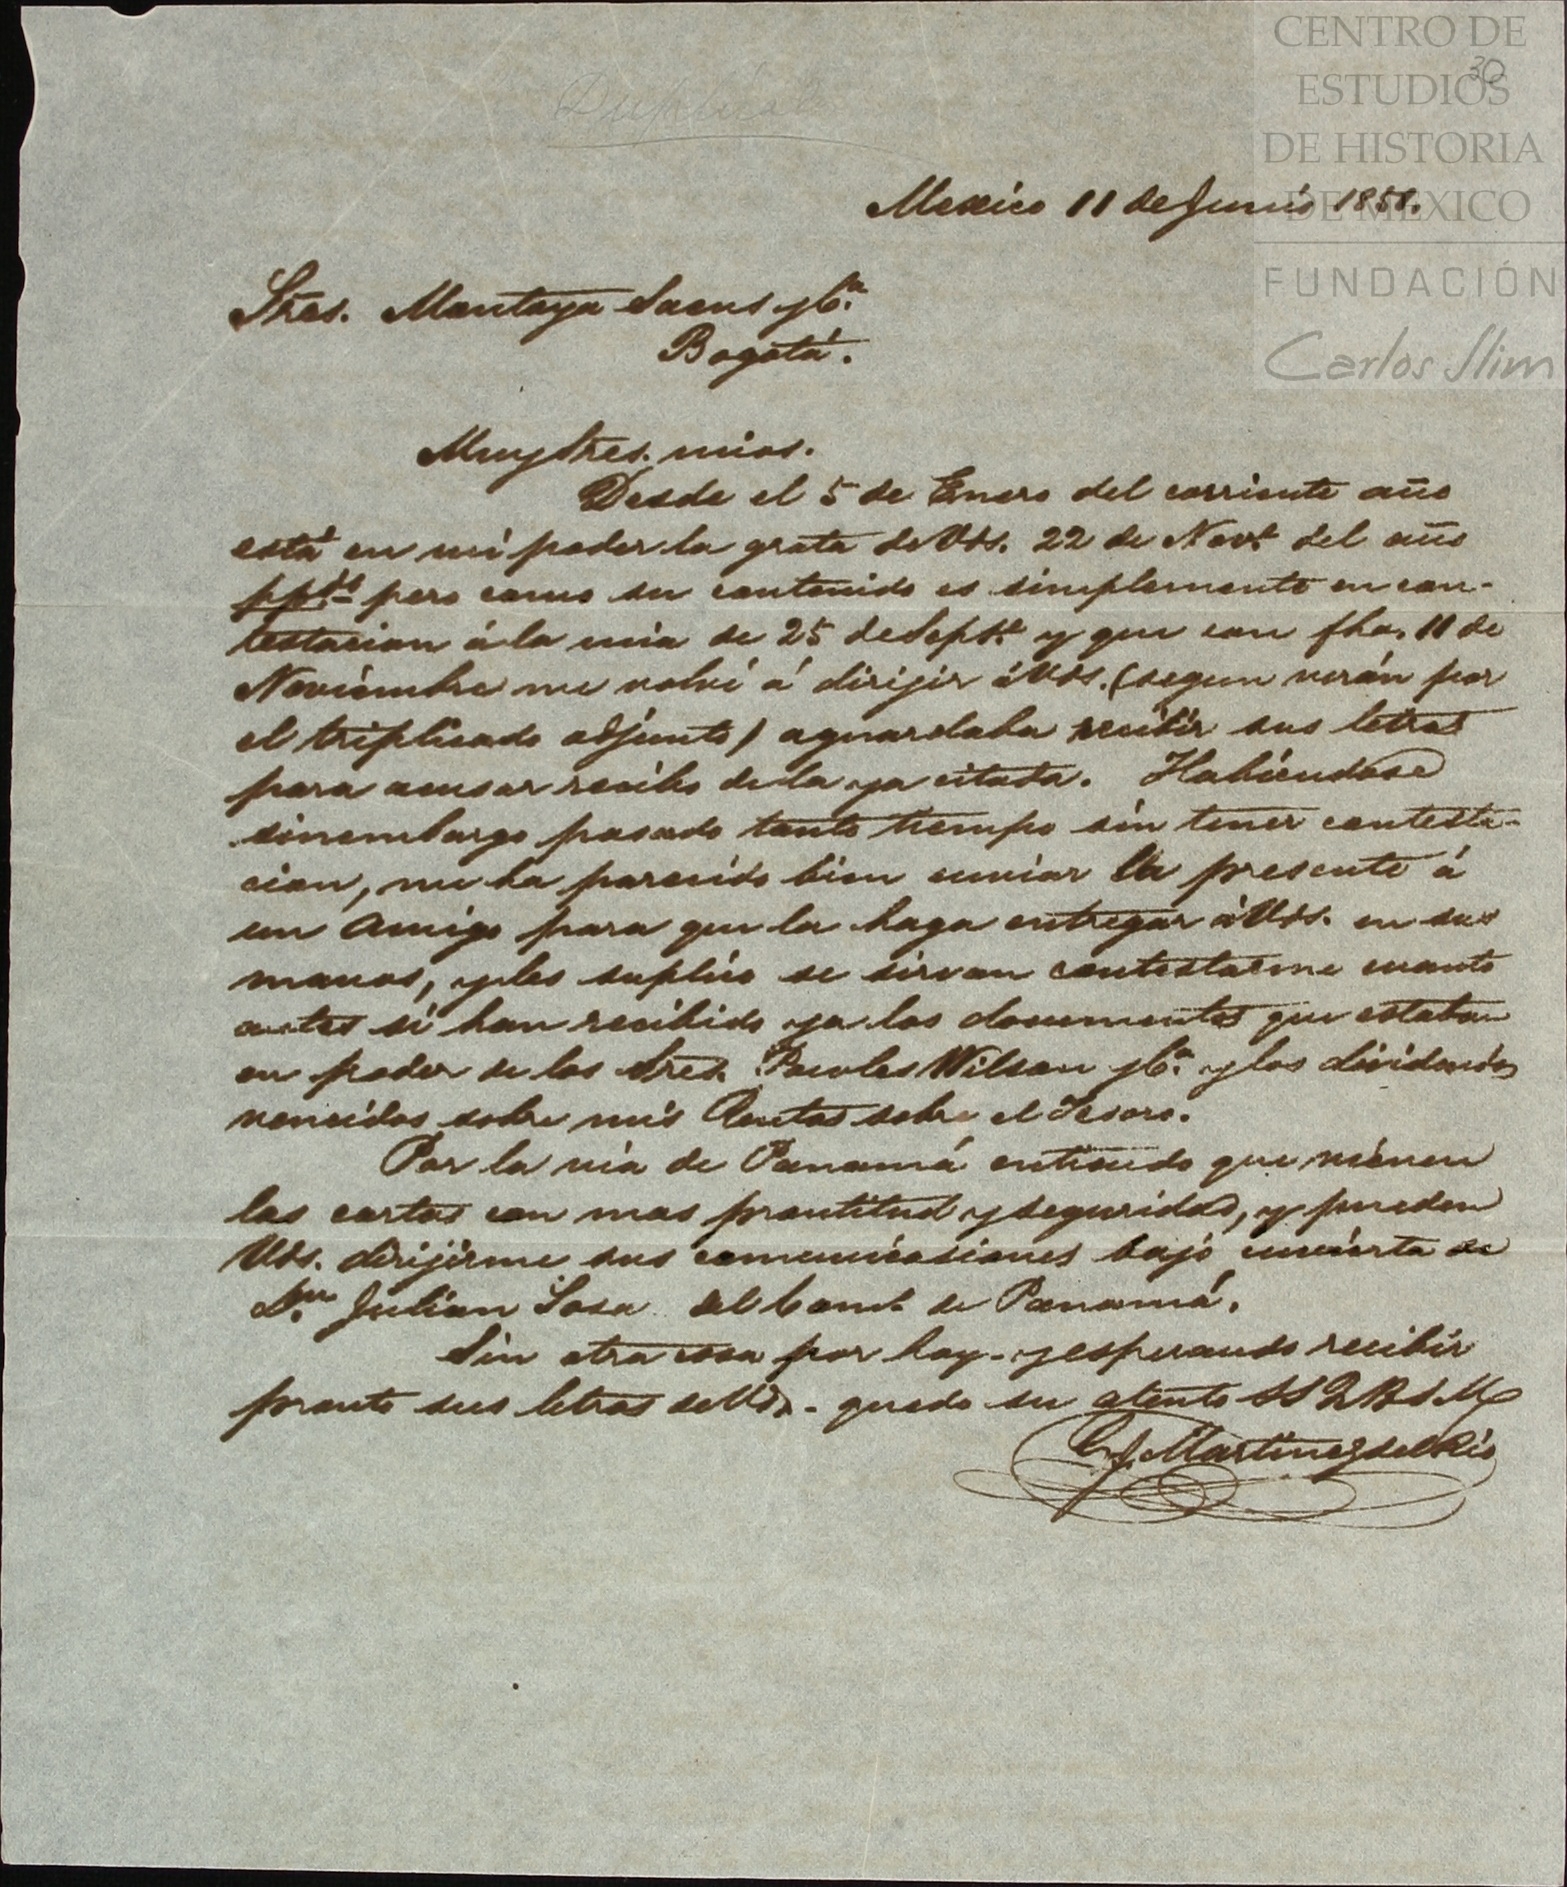 CENTRO DE
ESTUDIOS
DE HISTORIA
DE MEXICO
FUNDACIÓN
Carlos Slim
30
Duplicado
Mexico 11 de Junio 1851.
Sres. Montoya Saens y Ca.
Bogotá.
Muy Sres. mios.
Desde el 5 de Enero del corriente año
está en mi poder la grata de Vds. 22 de Nove. del año
ppdo. pero como su contenido es simplemente en con-
testacion á la mia de 25 de Sepbe. y que con fha. 11 de
Noviembre me volví á dirijir á Vds. (segun verán por
el triplicado adjunto) aguardaba recibir sus letras
para acusar recibo de la ya citada. Habiendose
sinembargo pasado tanto tiempo sin tener contesta-
cion, me ha parecido bien enviar la presente á
un amigo para que la haga entregar á Vds. en sus
manos, y les suplico se sirvan contestarme cuanto
antes si han recibido ya los documentos que estaban
en poder de los Sres. Powles Wilson y Ca. y los dividendos
vencidos sobre mis Rentas sobre el Tesoro.
Por la via de Panamá entiendo que vienen
las cartas con mas prontitud y seguridad, y pueden
Vds. dirijirme sus comunicaciones bajo cuvierta de
Dn. Julian Sosa del Comº. de Panamá.
Sin otra cosa por hoy - y esperando recibir
pronto sus letras de Vds. - quedo su atento SS Q B S M
G. J. Martinez del Rio